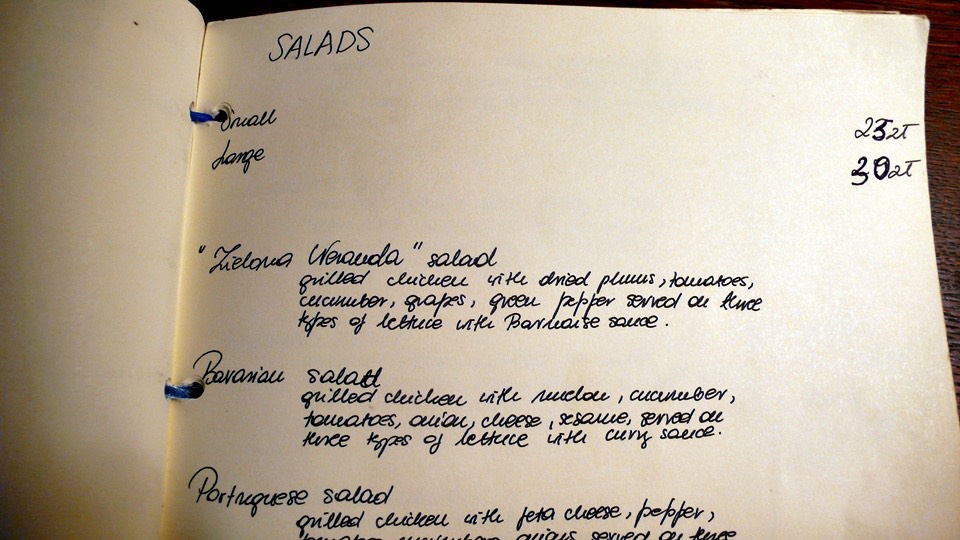 SALADS
Small 25zł
Large 30zł
"Zielona Weranda" salad
grilled chicken with dried plums, tomatoes,
cucumber, grapes, green pepper served on three
types of lettuce with Barnaise sauce.
Bavarian salad
grilled chicken with melon, cucumber,
tomatoes, onion, cheese, sesame, served on
three types of lettuce with curry sauce.
Portuguese salad
grilled chicken with feta cheese, pepper,
served on three